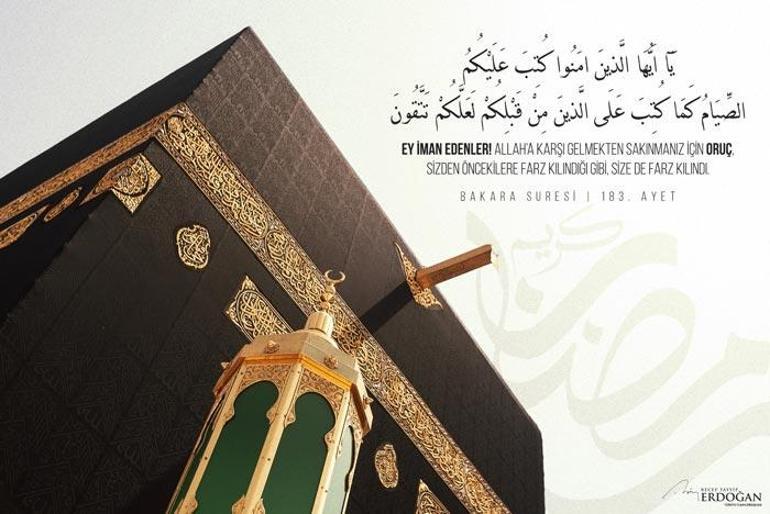 يَٓا اَيُّهَا الَّذ۪ينَ اٰمَنُوا كُتِبَ عَلَيْكُمُ
الصِّيَامُ كَمَا كُتِبَ عَلَى الَّذ۪ينَ مِنْ قَبْلِكُمْ لَعَلَّكُمْ تَتَّقُونَ
EY İMAN EDENLER! ALLAH'A KARŞI GELMEKTEN SAKINMANIZ İÇİN ORUÇ,
SİZDEN ÖNCEKİLERE FARZ KILINDIĞI GİBİ, SİZE DE FARZ KILINDI.
BAKARA SURESİ | 183. AYET
رمضان كريم
RECEP TAYYİP
ERDOĞAN